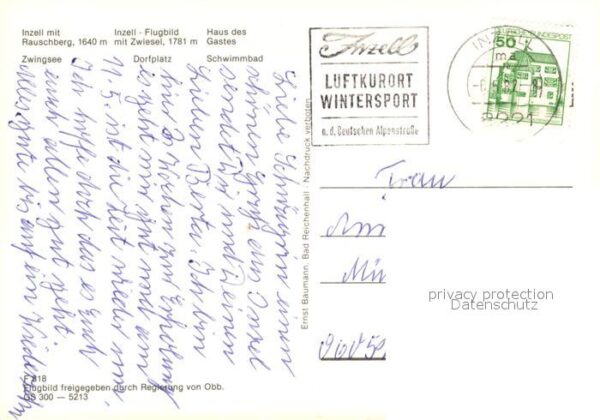 Inzell mit
Rauschberg, 1640 m
Inzell - Flugbild
mit Zwiesel, 1781 m
Haus des
Gastes
Zwingsee
Dorfplatz
Schwimmbad
Inzell
LUFTKURORT
WINTERSPORT
a. d. Deutschen Alpenstraße
50
DEUTSCHE BUNDESPOST
8221
Liebe Schwägerin einen
schönen Gruß aus Inzell
sendet Dir und Deinen
Lieben Berta. Ich bin
hier 3 Wochen zur Erholung
es geht mir gut und am
11.5 ist die Zeit wieder um.
Ich hoffe doch das es Euch
auch allen gut geht.
bis auf ein Wiedersehn
Ernst Baumann, Bad Reichenhall · Nachdruck verboten
Frau
Am
Mü
privacy protection
Datenschutz
818
Flugbild freigegeben durch Regierung von Obb.
GS 300 — 5213